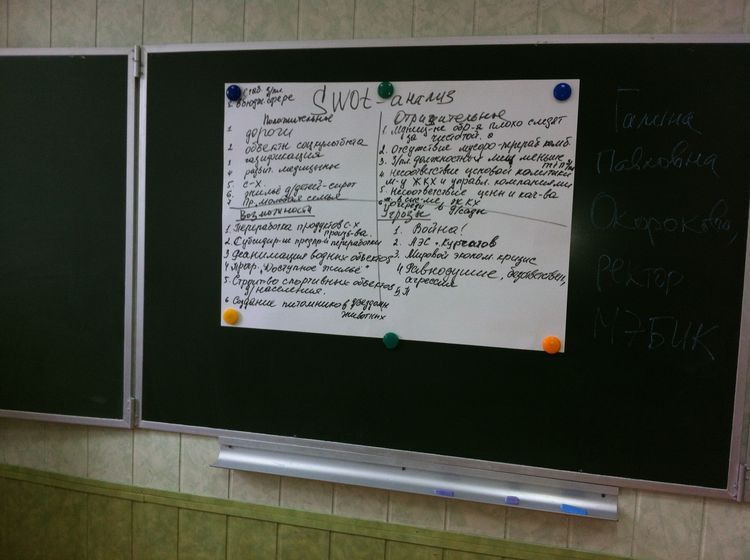 SWOt-анализ
Стаб. з/пл
в бюдж. сфере
Положительное
1 дороги
2 объекты соцкультбыта
3 газификация
4 развит. медицинское
5 с-х
6 жильё д/детей-сирот
7 Пр. молодая семья
Отрицательное
1. Муниц-не обр-я плохо следят
за чистотой.
2. Отсутствие мусоро-перераб комб.
3. З/пл должностных лиц меньше
4 несоответствие ценовой политики
м-у ЖКХ и управл. компаниями
5 Несоответствие цены и кач-ва
ЖКХ
очереди в д/сады
Возможности
1 Переработка продуктов с-х
произв-ва.
2. Субсидир-ие предпр-й переработки
3 Реанимация водных объектов
4 Прогр. „Доступное жильё"
5 Строит-во спортивных объектов
д/населения.
6 Создание питомников д/бездомн
животных
Угрозы
1. Война!
2. АЭС - Курчатов
3. Мировой эконом кризис
4 Равнодушие, безответствен,
агрессия
Галина
Павловна
Окорокова,
ректор
МЭБИК